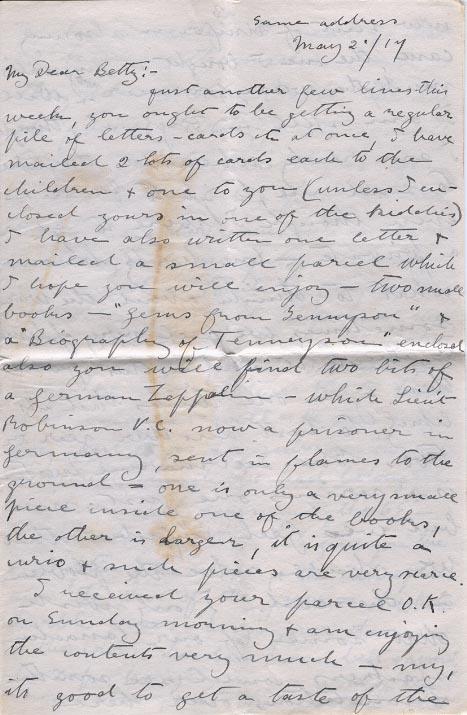 Same address
May 2/17
My Dear Betty:-
just another few lines this
week, you ought to be getting a regular
pile of letters - cards etc at once, I have
mailed 2 lots of cards each to the
children & one to you (unless I en-
closed yours in one of the kiddies)
I have also written one letter &
mailed a small parcel which
I hope you will enjoy - two small
books - "Gems from Tennyson" &
a "Biography of Tenneyson" enclosed
also you will find two bits of
a german Zeppelin - which Lieut
Robinson V.C. now a prisoner in
germany, sent in flames to the
ground - one is only a very small
piece inside one of the books,
the other is larger, it is quite a
curio & such pieces are very scarce.
I received your parcel O.K.
on Sunday morning & am enjoying
the contents very much - my,
its good to get a taste of the